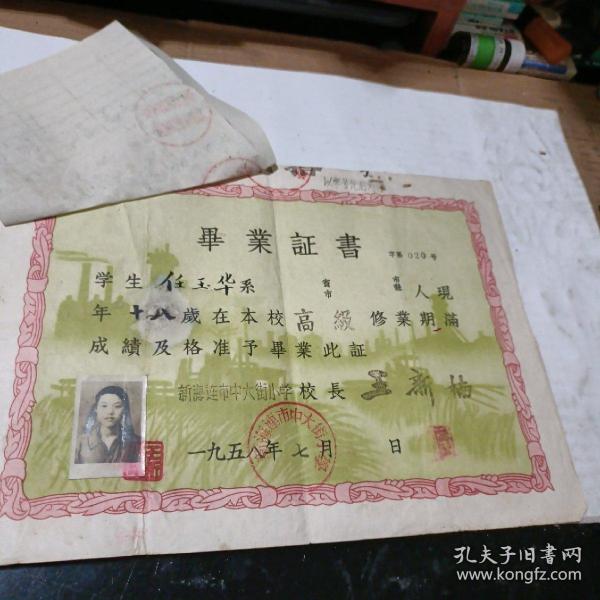 畢業証書
字第 020 号
学生 任玉华系 省市 市縣 人現
年十八歲在本校高級修業期滿
成績及格准予畢業此証
新海連市中大街小学 校長 王新柏
一九五八年七月 日
孔夫子旧書网
www.kongfz.com